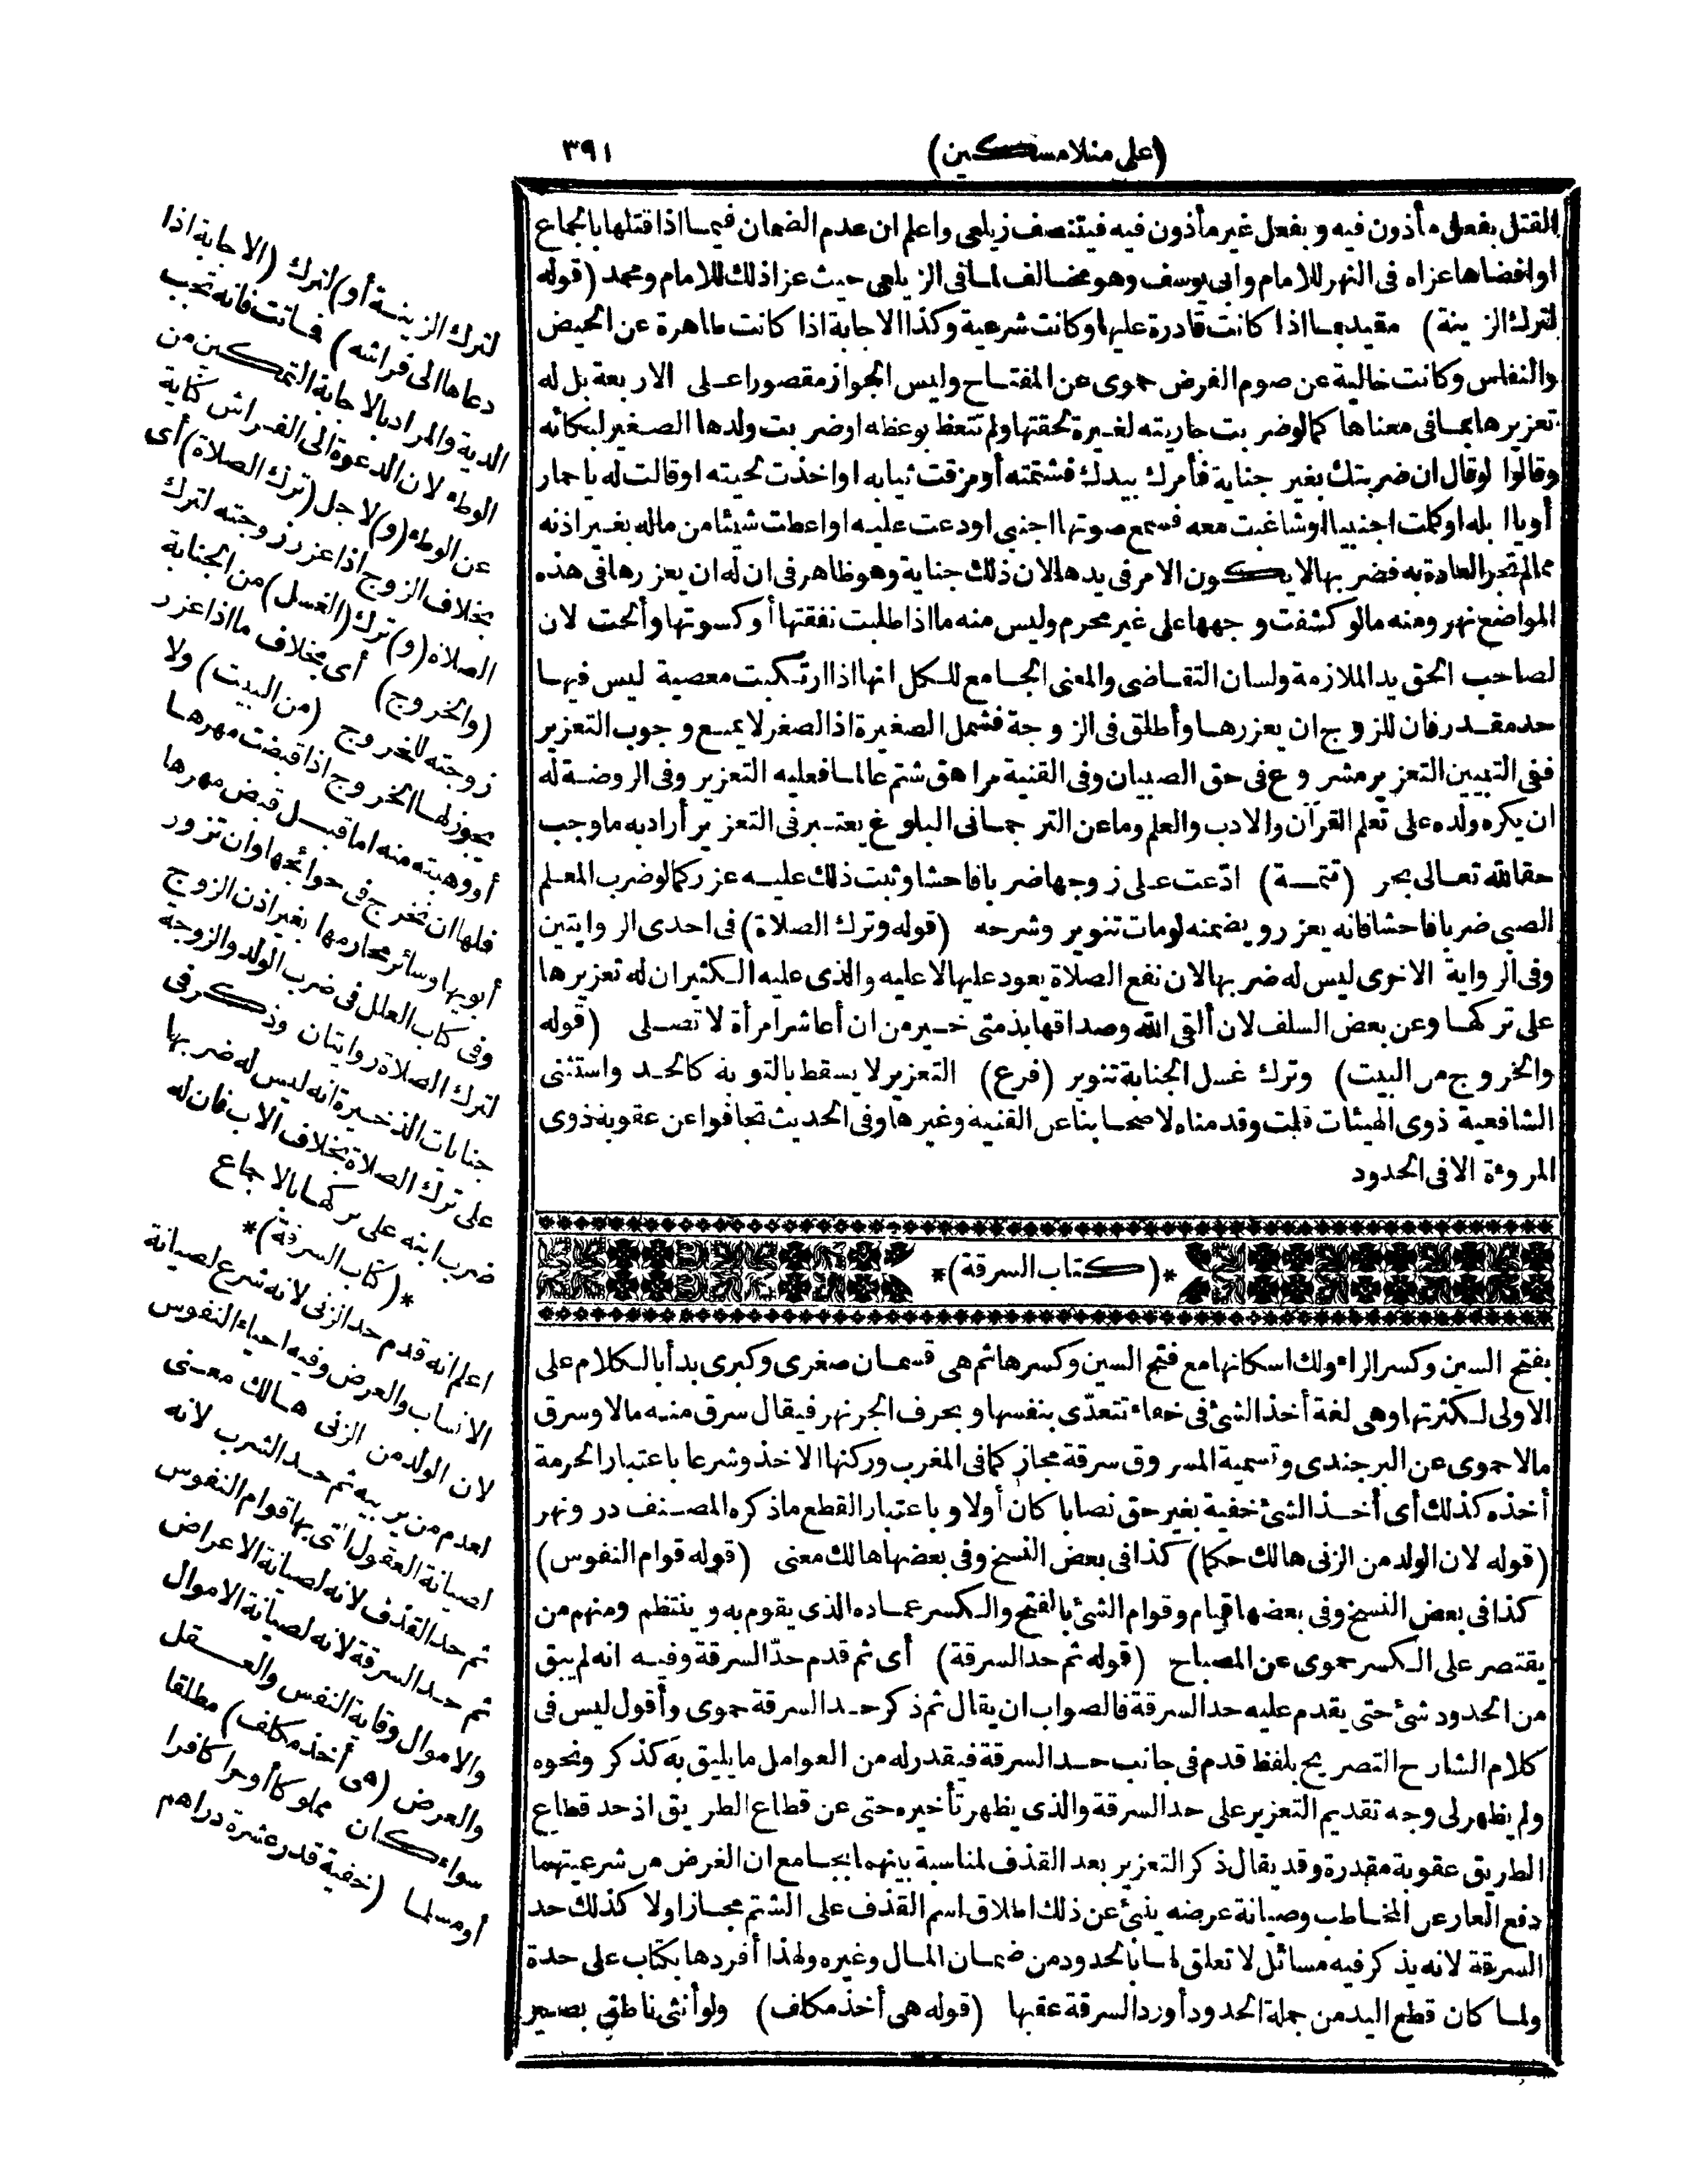 (على منلا مسكين)
٣٩١
القتل بفعل مأذون فيه و بفعل غير مأذون فيه فيتنصف زيلعى واعلم ان عدم الضمان فيما اذا قتلها بالجماع
اوافضاها عزاه فى النهر للامام وابى يوسف وهو مخالف لما فى الزيلعى حيث عزا ذلك للامام ومحمد (قوله
لترك الزينة) مقيد بما اذا كانت قادرة عليها وكانت شرعية وكذا الاجابة اذا كانت طاهرة عن الحيض
والنفاس وكانت خالية عن صوم الفرض حموى عن المفتاح وليس الجواز مقصورا على الاربعة بل له
تعزيرها بما فى معناها كما لو ضربت جاريته لغيرة لحقتها ولم تتعظ بوعظه اوضربت ولدها الصغير لبكائه
وقالوا لو قال ان ضربتك بغير جناية فأمرك بيدك فشتمته أومزقت ثيابه اواخذت لحيته اوقالت له يا حمار
أويا ابله اوكلمت اجنبيا اوشاغبت معه فسمع صوتها اجنبى اودعت عليه اواعطت شيئا من ماله بغير اذنه
مما لم تجر العادة به فضربها لا يكون الامر فى يدها لان ذلك جناية وهو ظاهر فى ان له ان يعزرها فى هذه
المواضع نهر ومنه ما لو كشفت وجهها على غير محرم وليس منه ما اذا طلبت نفقتها أوكسوتها وألحت لان
لصاحب الحق يد الملازمة ولسان التقاضى والمعنى الجامع للكل انها اذا ارتكبت معصية ليس فيها
حد مقدر فان للزوج ان يعزرها وأطلق فى الزوجة فشمل الصغيرة اذ الصغر لا يمنع وجوب التعزير
ففى التبيين التعزير مشروع فى حق الصبيان وفى القنية مراهق شتم عالما فعليه التعزير وفى الروضة له
ان يكره ولده على تعلم القرآن والادب والعلم وما عن الترجمانى البلوغ يعتبر فى التعزير أراد به ما وجب
حقا لله تعالى بحر (تتمة) ادّعت على زوجها ضربا فاحشا وثبت ذلك عليه عزر كما لو ضرب المعلم
الصبى ضربا فاحشا فانه يعزر و يضمنه لو مات تنوير وشرحه (قوله وترك الصلاة) فى احدى الروايتين
وفى الرواية الاخرى ليس له ضربها لان نفع الصلاة يعود عليها لا عليه والذى عليه الكثير ان له تعزيرها
على تركها وعن بعض السلف لان ألقى الله وصداقها بذمتى خير من ان أعاشر امرأة لا تصلى (قوله
والخروج من البيت) وترك غسل الجنابة تنوير (فرع) التعزير لا يسقط بالتوبة كالحد واستثنى
الشافعية ذوى الهيئات قلت وقد مناه لاصحابنا عن القنية وغيرها وفى الحديث تجافوا عن عقوبة ذوى
المروءة الا فى الحدود
*(كتاب السرقة)*
بفتح السين وكسر الراء ولك اسكانها مع فتح السين وكسرها ثم هى قسمان صغرى وكبرى بدأ بالكلام على
الاولى لكثرتها وهى لغة أخذ الشئ فى خفاء تتعدّى بنفسها وبحرف الجر نهر فيقال سرق منه مالا وسرق
مالا حموى عن البرجندى وتسمية المسروق سرقة مجاز كما فى المغرب وركنها الاخذ وشرعا باعتبار الحرمة
أخذه كذلك أى أخذ الشئ خفية بغير حق نصابا كان أولا وباعتبار القطع ما ذكره المصنف در ونهر
(قوله لان الولد من الزنى هالك حكما) كذا فى بعض النسخ وفى بعضها هالك معنى (قوله قوام النفوس)
كذا فى بعض النسخ وفى بعضها قيام وقوام الشئ بالفتح والكسر عماده الذى يقوم به و ينتظم ومنهم من
يقتصر على الكسر حموى عن المصباح (قوله ثم حد السرقة) أى ثم قدم حدّ السرقة وفيه انه لم يبق
من الحدود شئ حتى يقدم عليه حد السرقة فالصواب ان يقال ثم ذكر حد السرقة حموى وأقول ليس فى
كلام الشارح التصريح بلفظ قدم فى جانب حد السرقة فيقدر له من العوامل ما يليق به كذكر ونحوه
ولم يظهر لى وجه تقديم التعزير على حد السرقة والذى يظهر تأخيره حتى عن قطاع الطريق اذ حد قطاع
الطريق عقوبة مقدرة وقد يقال ذكر التعزير بعد القذف لمناسبة بينهما بجامع ان الغرض من شرعيتهما
دفع العار عن المخاطب وصيانة عرضه ينبئ عن ذلك اطلاق اسم القذف على الشتم مجازا ولا كذلك حد
السرقة لانه يذكر فيه مسائل لا تعلق لها بالحدود من ضمان المال وغيره ولهذا أفردها بكتاب على حدة
ولما كان قطع اليد من جملة الحدود أورد السرقة عقبها (قوله هى أخذ مكلف) ولو أنثى ناطق بصير
لترك الزينة أو) لترك (الاجابة اذا
دعاها الى فراشه) فماتت فانه تجب
الدية والمراد بالاجابة التمكين من
الوطء لان الدعوة الى الفراش كناية
عن الوطء (و) لاجل (ترك الصلاة) أى
بخلاف الزوج اذا عزر زوجته لترك
الصلاة (و) ترك (الغسل) من الجنابة
(والخروج) أى بخلاف ما اذا عزر
زوجته للخروج (من البيت) ولا
يجوز لها الخروج اذا قبضت مهرها
أو وهبته منه اما قبل قبض مهرها
فلها ان تخرج فى حوائجها وان تزور
أبويها وسائر محارمها بغير اذن الزوج
وفى كتاب العلل فى ضرب الولد والزوجة
لترك الصلاة روايتان وذكر فى
جنايات الذخيرة انه ليس له ضربها
على ترك الصلاة بخلاف الاب فان له
ضرب ابنه على تركها بالاجماع
*(كتاب السرقة)*
اعلم انه قدم حد الزنى لانه شرع لصيانة
الانساب والعرض وفيه احياء النفوس
لان الولد من الزنى هالك معنى
لعدم من يربيه ثم حد الشرب لانه
لصيانة العقول التى بها قوام النفوس
ثم حد القذف لانه لصيانة الاعراض
ثم حد السرقة لانه لصيانة الاموال
والاموال وقاية النفس والعقل
والعرض (هى أخذ مكلف) مطلقا
سواء كان مملوكا أو حرا كافرا
أو مسلما (خفية قدر عشرة دراهم